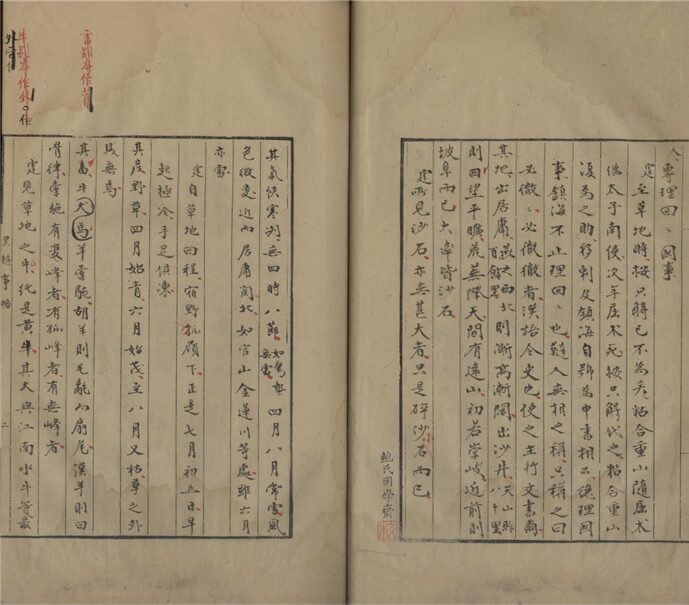 人、專理回、國事
霆至草地時按只䚟已不為矣粘合重山隨屈朮
偽太子南侵次年屈朮死按只䚟代之粘合重山
復為之助移剌及鎮海自號為中書相公總理國
事鎮海不止理回、也韃人無相之稱只稱之曰
必徹、必徹徹者漢語令史也使之主行文書爾
其地出居庸燕之西北百餘里則漸高漸闊出沙井天山縣八十里
則四望平曠荒蕪際天間有遠山初若崇峻近前則
坡阜而已大率皆沙石
霆所見沙石亦無甚大者只是碎沙石而已
鮑氏困學齋
其氣候寒冽無四時八節如驚蟄無雷四月八月常雪風
色微變近而居庸關北如官山金蓮川等處雖六月
亦雪
霆自草地回程宿野狐嶺下正是七月初五日早
起極冷手足俱凍
其產野草四月始青六月始茂至八月又枯草之外
咸無焉
其畜牛犬馬羊橐駝胡羊則毛毨而扇尾漢羊則曰
骨律橐駝有雙峰者有孤峰者有無峰者
霆見草地之牛純是黃牛其大與江南水牛等最
黑韃事略 二
別本作首
牛別本作外